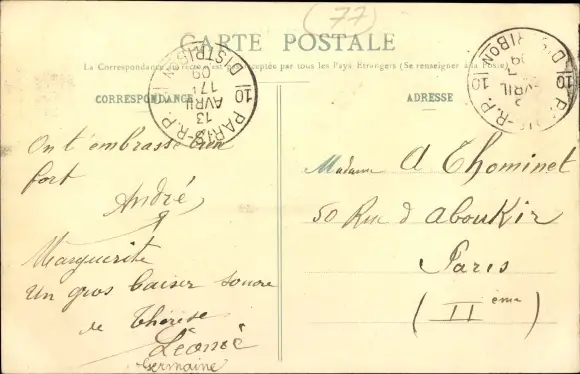 (77)
CARTE POSTALE
La Correspondance au recto n'est pas acceptée par tous les Pays Étrangers (Se renseigner à la Poste)
CORRESPONDANCE
ADRESSE
10 PARIS-R.P. 10
DISTRIBON
13
AVRIL
09
DISTRIBON
AVRIL
09
On t'embrasse bien
fort
André,
Marguerite
Un gros baiser
de Thérèse
Léonie
Germaine
Madame A Thominet
50 Rue d'Aboukir
Paris
(IIème)